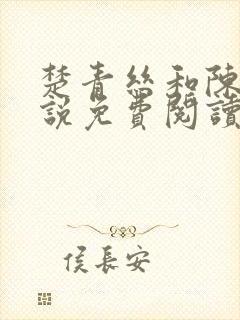 楚青絲和陳
說免費閱讀
侯長安